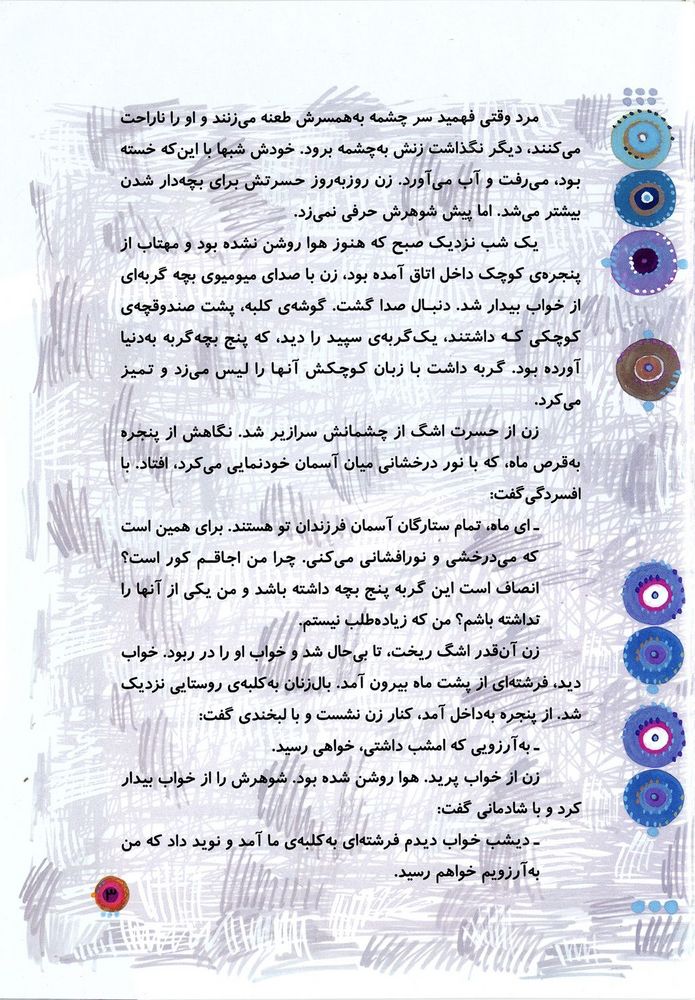 مرد وقتی فهمید سر چشمه به‌همسرش طعنه می‌زنند و او را ناراحت
می‌کنند، دیگر نگذاشت زنش به‌چشمه برود. خودش شبها با این‌که خسته
بود، می‌رفت و آب می‌آورد. زن روزبه‌روز حسرتش برای بچه‌دار شدن
بیشتر می‌شد. اما پیش شوهرش حرفی نمی‌زد.
یک شب نزدیک صبح که هنوز هوا روشن نشده بود و مهتاب از
پنجره‌ی کوچک داخل اتاق آمده بود، زن با صدای میومیوی بچه گربه‌ای
از خواب بیدار شد. دنبـال صدا گشت. گوشه‌ی کلبه، پشت صندوقچه‌ی
کوچکی کـه داشتند، یک‌گربه‌ی سپید را دید، که پنج بچه‌گربه به‌دنیا
آورده بود. گربه داشت با زبان کوچکش آنها را لیس می‌زد و تمیز
می‌کرد.
زن از حسرت اشگ از چشمانش سرازیر شد. نگاهش از پنجره
به‌قرص ماه، که با نور درخشانی میان آسمان خودنمایی می‌کرد، افتاد. با
افسردگی‌گفت:
ـ ای ماه، تمام ستارگان آسمان فرزندان تو هستند. برای همین است
که می‌درخشی و نورافشانی می‌کنی. چرا من اجاقـم کور است؟
انصاف است این گربه پنج بچه داشته باشد و من یکی از آنها را
نداشته باشم؟ من که زیاده‌طلب نیستم.
زن آن‌قدر اشگ ریخت، تا بی‌حال شد و خواب او را در ربود. خواب
دید، فرشته‌ای از پشت ماه بیرون آمد. بال‌زنان به‌کلبه‌ی روستایی نزدیک
شد. از پنجره به‌داخل آمد، کنار زن نشست و با لبخندی گفت:
ـ به‌آرزویی که امشب داشتی، خواهی رسید.
زن از خواب پرید. هوا روشن شده بود. شوهرش را از خواب بیدار
کرد و با شادمانی گفت:
ـ دیشب خواب دیدم فرشته‌ای به‌کلبه‌ی ما آمد و نوید داد که من
به‌آرزویم خواهم رسید.